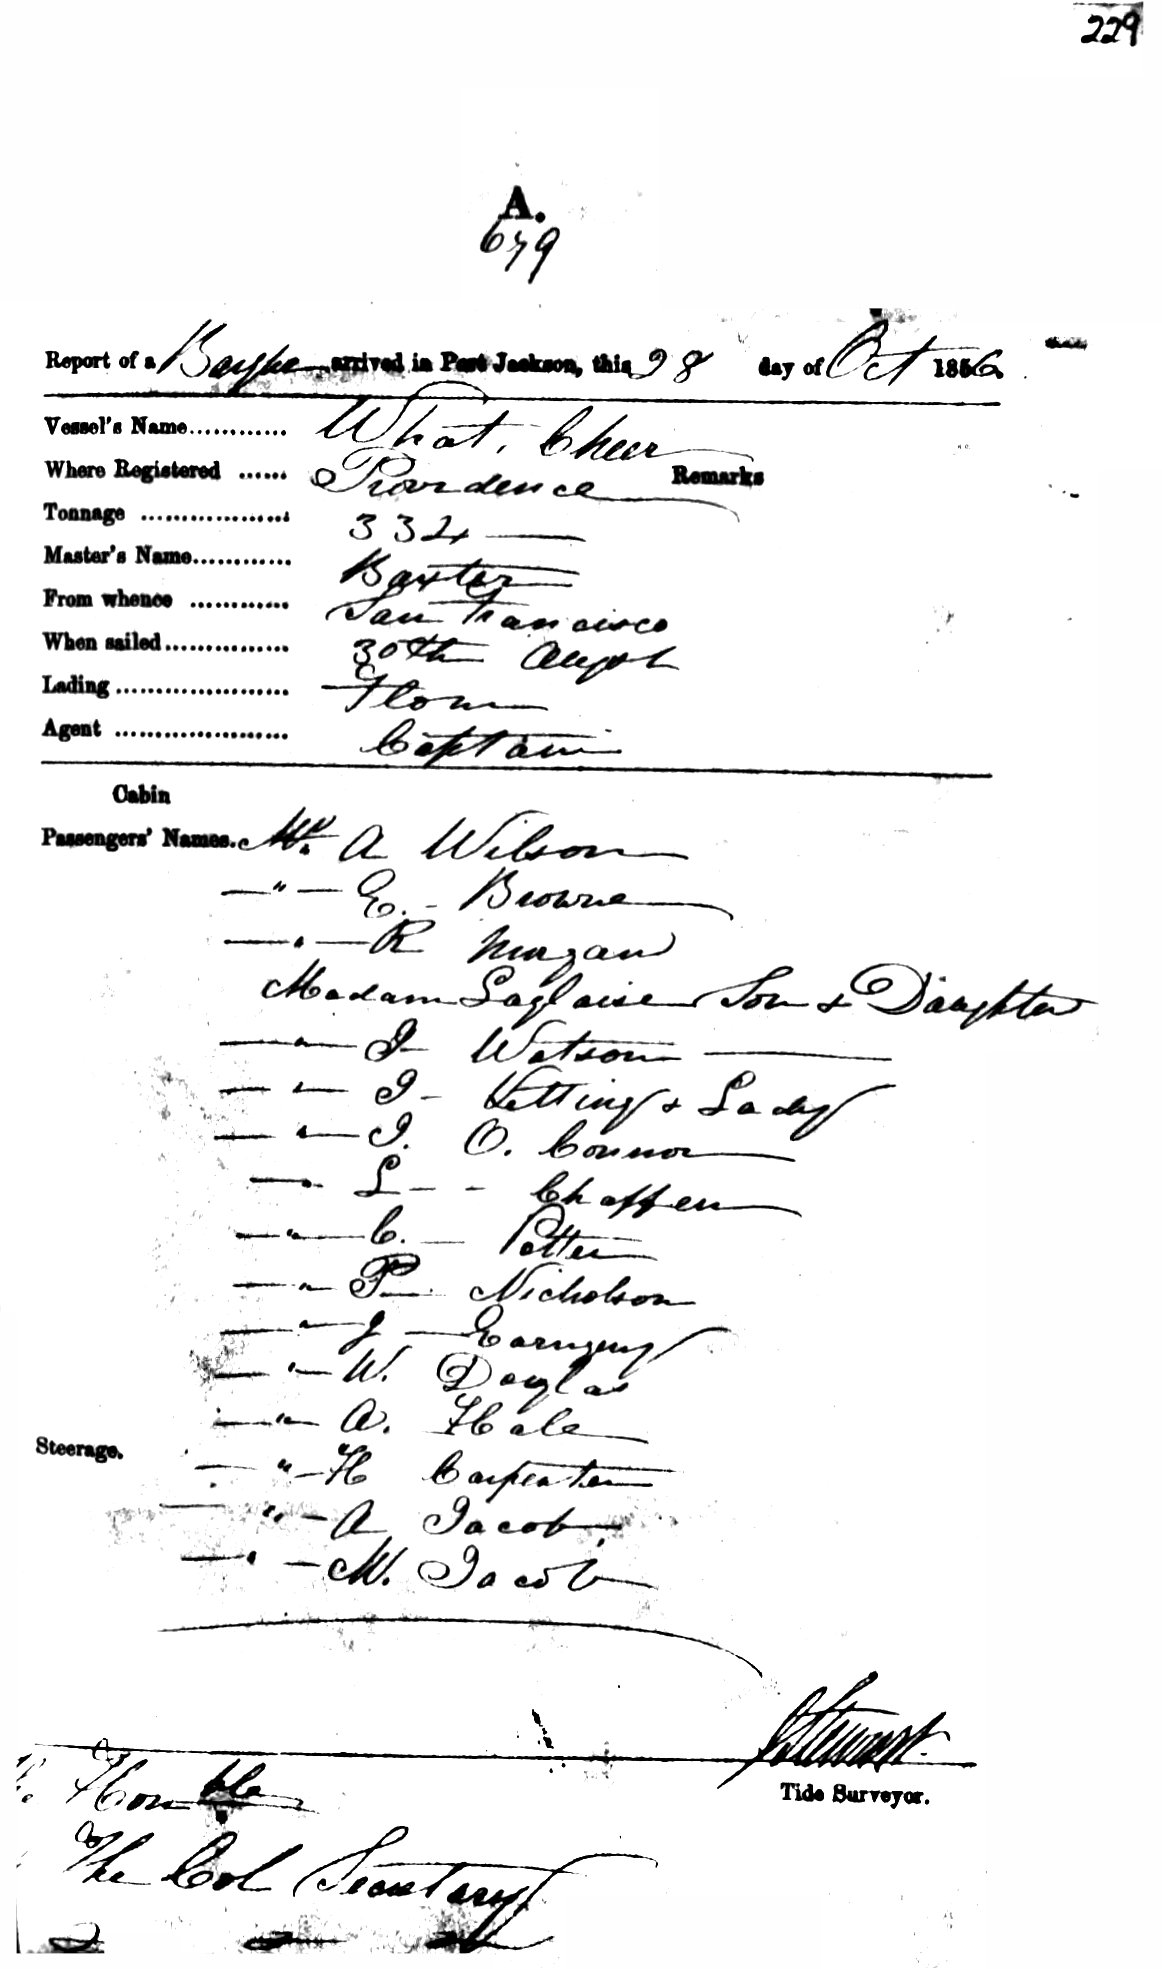 229
A.
679
Report of a Barque arrived in Port Jackson, this 28 day of Oct 1856.
Vessel's Name............ What Cheer
Where Registered ...... Providence Remarks
Tonnage .................. 334
Master's Name............ Baxter
From whence ............ San Francisco
When sailed............... 30th Augst
Lading ..................... Flour
Agent ..................... Captain
Cabin
Passengers' Names. Mr. A Wilson
— " — E. - Browne
— " — R Morgan
Madam Laglaise Son & Daughter
— " — J - Watson
— " — J - & Lady
— " — J. O. Connor
— " L - - Chaffen
— " — C. — Potter
— " P — Nicholson
— " — J —
— " — W. Douglas
— " — A. Hale
Steerage. — " — H Carpenter
— " — A Jacob
— " — M. Jacob
Tide Surveyor.
Honble
The Col Secretary